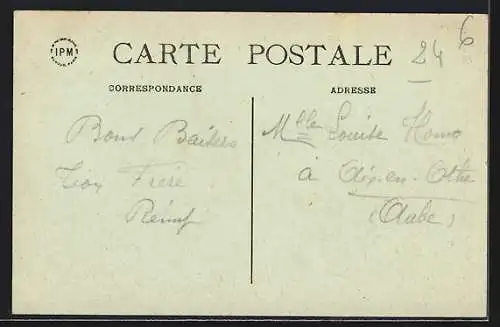 IPM
CARTE POSTALE
24
6
CORRESPONDANCE
ADRESSE
Bons Baisers
Ton Frère
Rémy
Mlle Louise Homo
à Aix-en-Othe
(Aube)